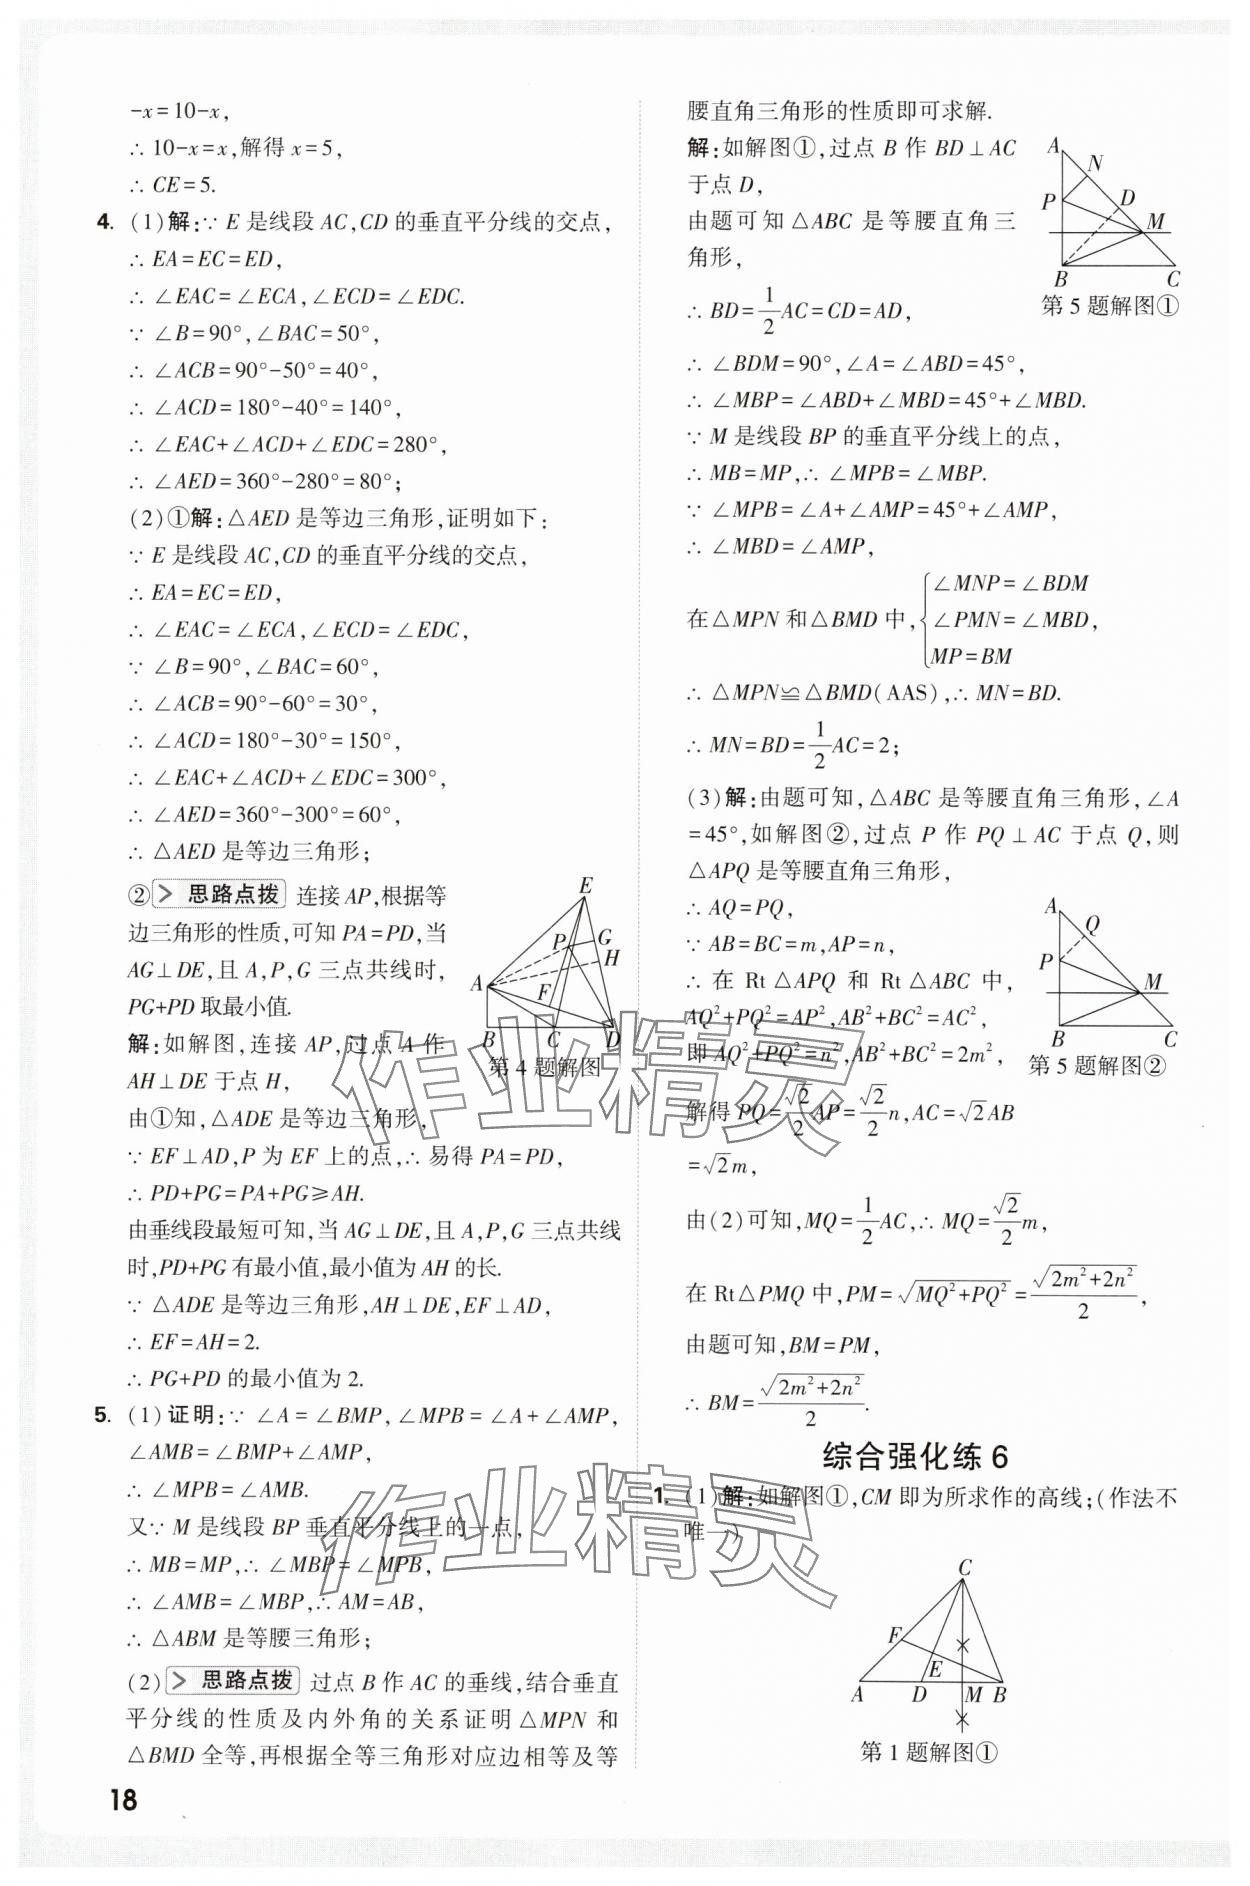 -x=10-x,
∴ 10-x=x,解得 x=5,
∴ CE=5.
4. (1)解:∵ E 是线段 AC,CD 的垂直平分线的交点,
∴ EA=EC=ED,
∴ ∠EAC=∠ECA,∠ECD=∠EDC.
∵ ∠B=90°,∠BAC=50°,
∴ ∠ACB=90°-50°=40°,
∴ ∠ACD=180°-40°=140°,
∴ ∠EAC+∠ACD+∠EDC=280°,
∴ ∠AED=360°-280°=80°;
(2)①解:△AED 是等边三角形,证明如下:
∵ E 是线段 AC,CD 的垂直平分线的交点,
∴ EA=EC=ED,
∴ ∠EAC=∠ECA,∠ECD=∠EDC,
∵ ∠B=90°,∠BAC=60°,
∴ ∠ACB=90°-60°=30°,
∴ ∠ACD=180°-30°=150°,
∴ ∠EAC+∠ACD+∠EDC=300°,
∴ ∠AED=360°-300°=60°,
∴ △AED 是等边三角形;
② > 思路点拨 连接 AP,根据等
边三角形的性质,可知 PA=PD,当
AG⊥DE,且 A,P,G 三点共线时,
PG+PD 取最小值.
解:如解图,连接 AP,过点 A 作
AH⊥DE 于点 H,
E
P
G
H
A
F
B
C
D
第 4 题解图
由①知,△ADE 是等边三角形,
∵ EF⊥AD,P 为 EF 上的点,∴ 易得 PA=PD,
∴ PD+PG=PA+PG≥AH.
由垂线段最短可知,当 AG⊥DE,且 A,P,G 三点共线
时,PD+PG 有最小值,最小值为 AH 的长.
∵ △ADE 是等边三角形,AH⊥DE,EF⊥AD,
∴ EF=AH=2.
∴ PG+PD 的最小值为 2.
5. (1)证明:∵ ∠A=∠BMP,∠MPB=∠A+∠AMP,
∠AMB=∠BMP+∠AMP,
∴ ∠MPB=∠AMB.
又∵ M 是线段 BP 垂直平分线上的一点,
∴ MB=MP,∴ ∠MBP=∠MPB,
∴ ∠AMB=∠MBP,∴ AM=AB,
∴ △ABM 是等腰三角形;
(2) > 思路点拨 过点 B 作 AC 的垂线,结合垂直
平分线的性质及内外角的关系证明△MPN 和
△BMD 全等,再根据全等三角形对应边相等及等
18
腰直角三角形的性质即可求解.
解:如解图①,过点 B 作 BD⊥AC
于点 D,
由题可知△ABC 是等腰直角三
角形,
A
N
P
D
M
B
C
第 5 题解图①
∴ BD=1/2AC=CD=AD,
∴ ∠BDM=90°,∠A=∠ABD=45°,
∴ ∠MBP=∠ABD+∠MBD=45°+∠MBD.
∵ M 是线段 BP 的垂直平分线上的点,
∴ MB=MP,∴ ∠MPB=∠MBP.
∵ ∠MPB=∠A+∠AMP=45°+∠AMP,
∴ ∠MBD=∠AMP,
在△MPN 和△BMD 中,{∠MNP=∠BDM
∠PMN=∠MBD,
MP=BM
∴ △MPN≌△BMD(AAS),∴ MN=BD.
∴ MN=BD=1/2AC=2;
(3)解:由题可知,△ABC 是等腰直角三角形,∠A
=45°,如解图②,过点 P 作 PQ⊥AC 于点 Q,则
△APQ 是等腰直角三角形,
∴ AQ=PQ,
∵ AB=BC=m,AP=n,
∴ 在 Rt△APQ 和 Rt△ABC 中,
AQ²+PQ²=AP²,AB²+BC²=AC²,
即 AQ²+PQ²=n²,AB²+BC²=2m²,
A
Q
P
M
B
C
第 5 题解图②
解得 PQ=√2/2AP=√2/2n,AC=√2AB
=√2m,
由(2)可知,MQ=1/2AC,∴ MQ=√2/2m,
在 Rt△PMQ 中,PM=√(MQ²+PQ²)=√(2m²+2n²)/2,
由题可知,BM=PM,
∴ BM=√(2m²+2n²)/2.
综合强化练 6
1. (1)解:如解图①,CM 即为所求作的高线;(作法不
唯一)
C
F
E
A
D
M
B
第 1 题解图①
作业精灵
作业精灵